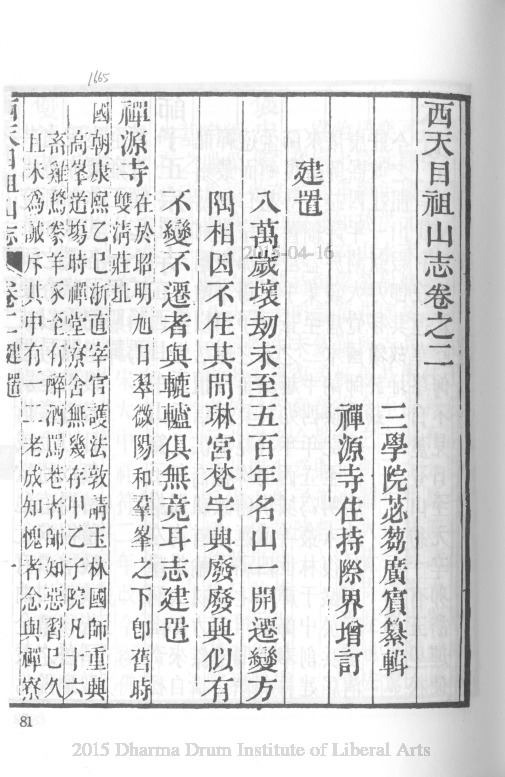 1665
西天目祖山志卷之二
三學院苾芻廣賓纂輯
禪源寺住持際界增訂
建置
八萬歲壞刼未至五百年名山一開遷變方
隅相因不住其間琳宮梵宇興廢廢興似有
不變不遷者與轆轤俱無竟耳志建置
禪源寺在於昭明旭日翠微陽和羣峯之下卽舊時
雙清莊址
國朝康熙乙巳浙直宰官護法敦請玉林國師重興
高峯道塲時禪堂寮舍無幾存甲乙子院凡十六
畜雞鶩豢羊豕至有醉酒罵巷者師知惡習已久
且未爲誠斥其中有一二老成知愧者念與禪寮
西天目祖山志 卷二 建置 一
81
2013-04-16
2015 Dharma Drum Institute of Liberal Arts